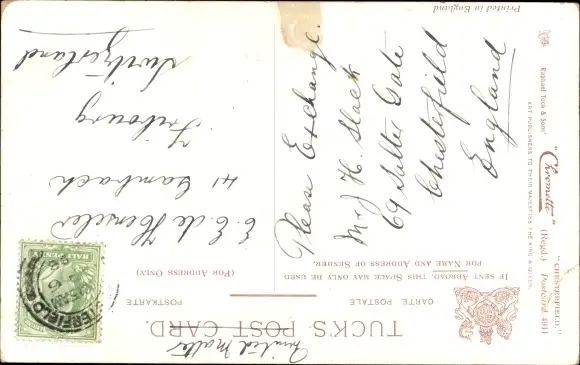 Printed Matter
TUCK'S POST CARD
CARTE POSTALE
POSTKARTE
IF SENT ABROAD, THIS SPACE MAY ONLY BE USED
FOR NAME AND ADDRESS OF SENDER.
(FOR ADDRESS ONLY)
Please Exchange.
Mr J. H. Slack
69 Salter Gate
Chesterfield
England
E. E. de Henseler
41 Gambach
Fribourg
Switzerland
HALF PENNY
"CHESTERFIELD."
"Chromette" (Regd.) Postcard 4911
RAPHAEL TUCK & SONS'
ART PUBLISHERS TO THEIR MAJESTIES THE KING & QUEEN.
Printed in England